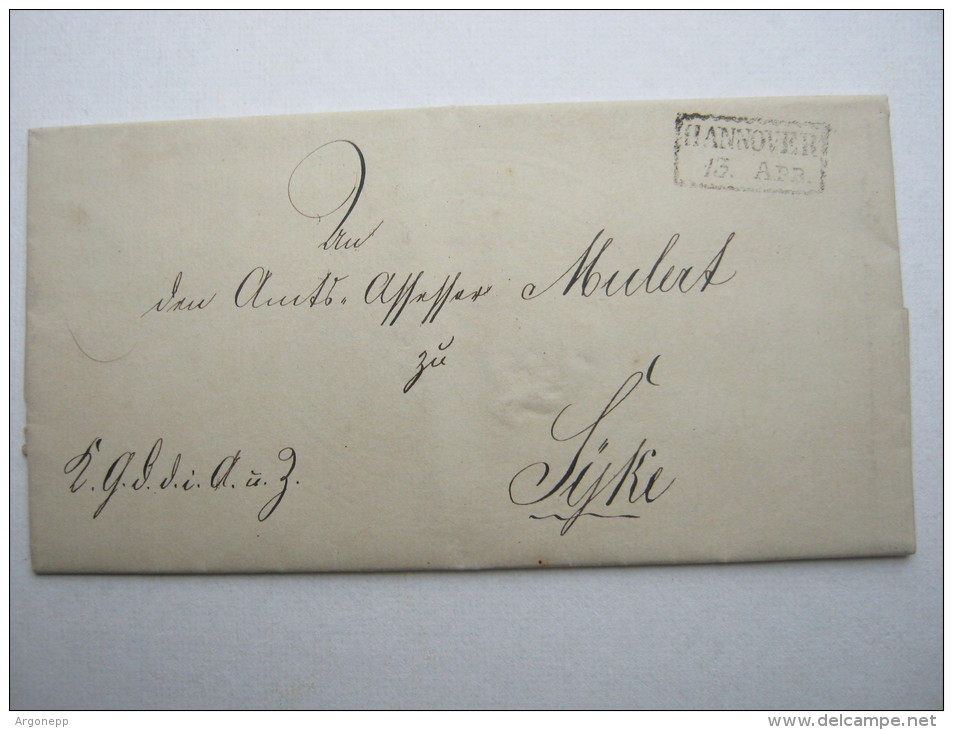 HANNOVER
13. APR.
An
den Amts-Assessor Mulert
zu
Sÿke
K. G. D. d. i. A. u. Z.
Argonepp
www.delcampe.net